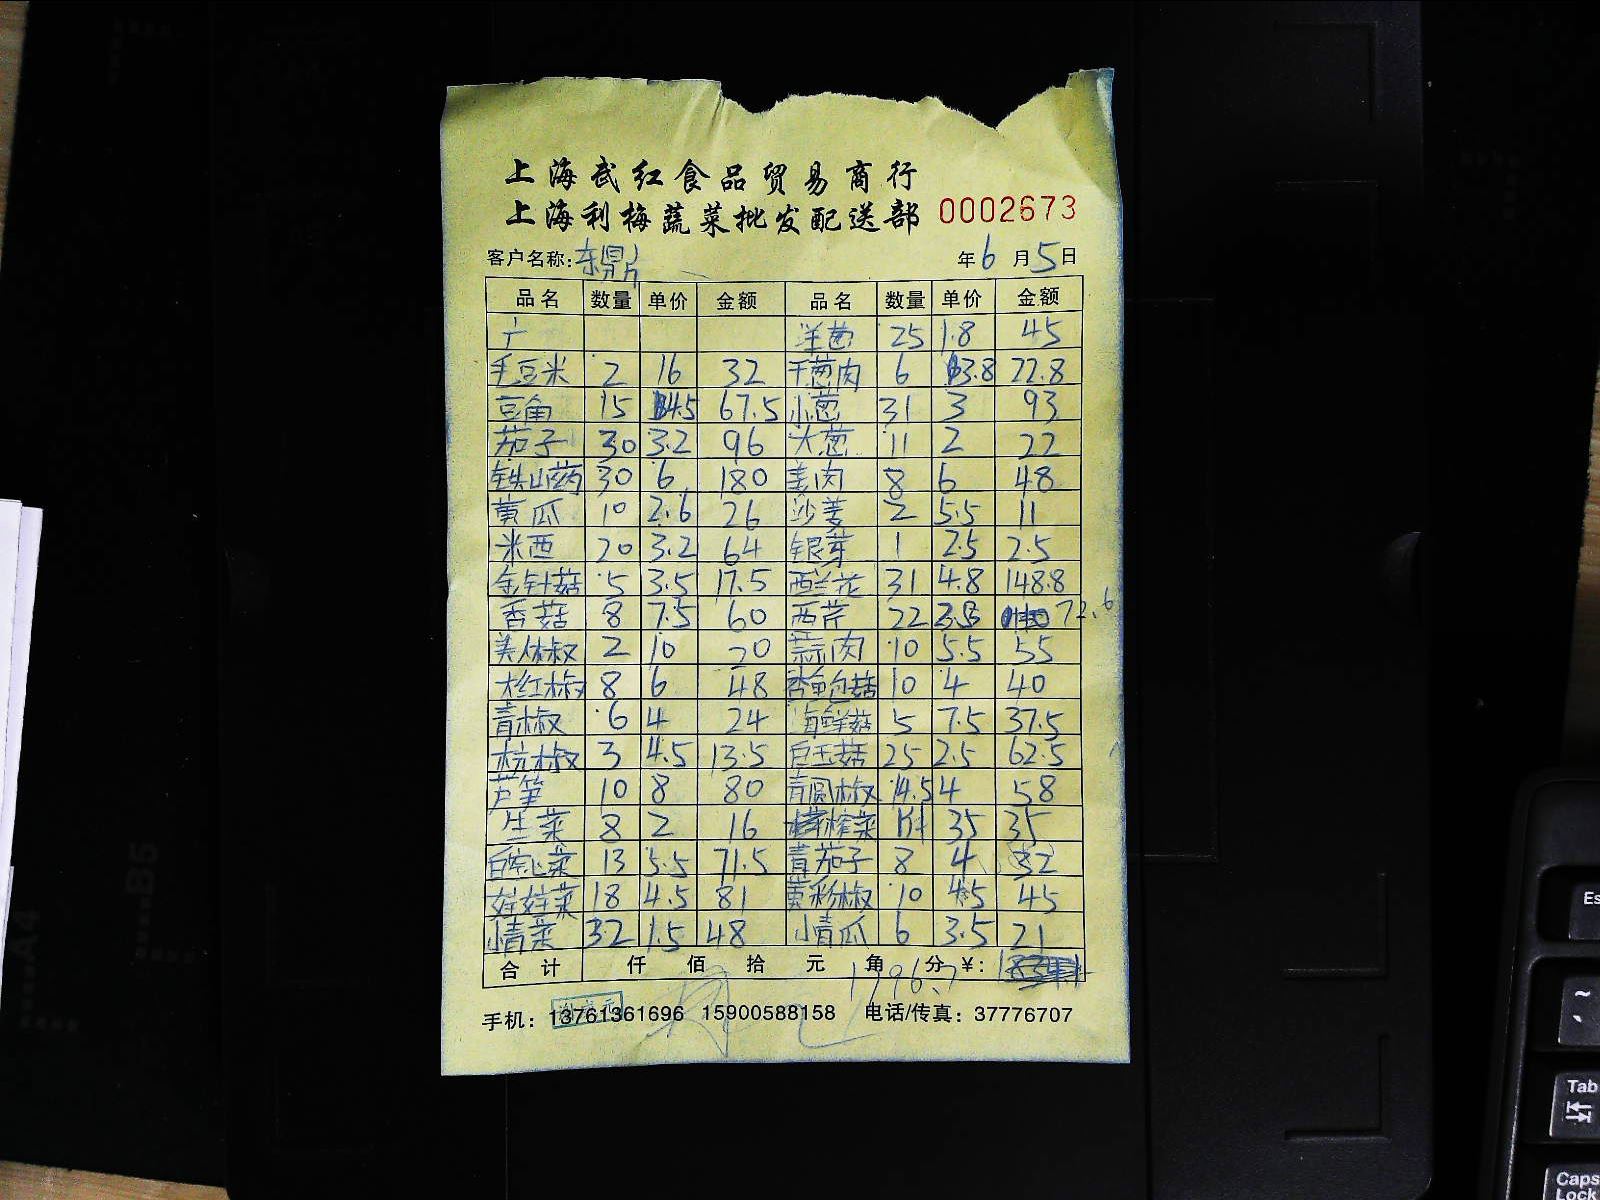 上海武红食品贸易商行
上海利梅蔬菜批发配送部 0002673
客户名称: 东鼎 年 6 月 5 日
品名 数量 单价 金额 品名 数量 单价 金额
洋葱 25 1.8 45
毛豆米 2 16 32 干葱肉 6 3.8 22.8
豆角 15 4.5 67.5 小葱 31 3 93
茄子 30 3.2 96 大葱 11 2 22
铁山药 30 6 180 姜肉 8 6 48
黄瓜 10 2.6 26 沙姜 2 5.5 11
米西 20 3.2 64 银芽 1 2.5 2.5
金针菇 5 3.5 17.5 西兰花 31 4.8 148.8
香菇 8 7.5 60 西芹 22 3.3 72.6
美人椒 2 10 20 蒜肉 10 5.5 55
大红椒 8 6 48 杏鲍菇 10 4 40
青椒 6 4 24 海鲜菇 5 7.5 37.5
杭椒 3 4.5 13.5 白玉菇 25 2.5 62.5
芦笋 10 8 80 青圆椒 14.5 4 58
生菜 8 2 16 榨菜 1件 35 35
白空心菜 13 5.5 71.5 青茄子 8 4 32
娃娃菜 18 4.5 81 黄彩椒 10 4.5 45
小青菜 32 1.5 48 小青瓜 6 3.5 21
合计 仟 佰 拾 元 角 分 ¥: 1996.7
手机: 13761361696 15900588158 电话/传真: 37776707